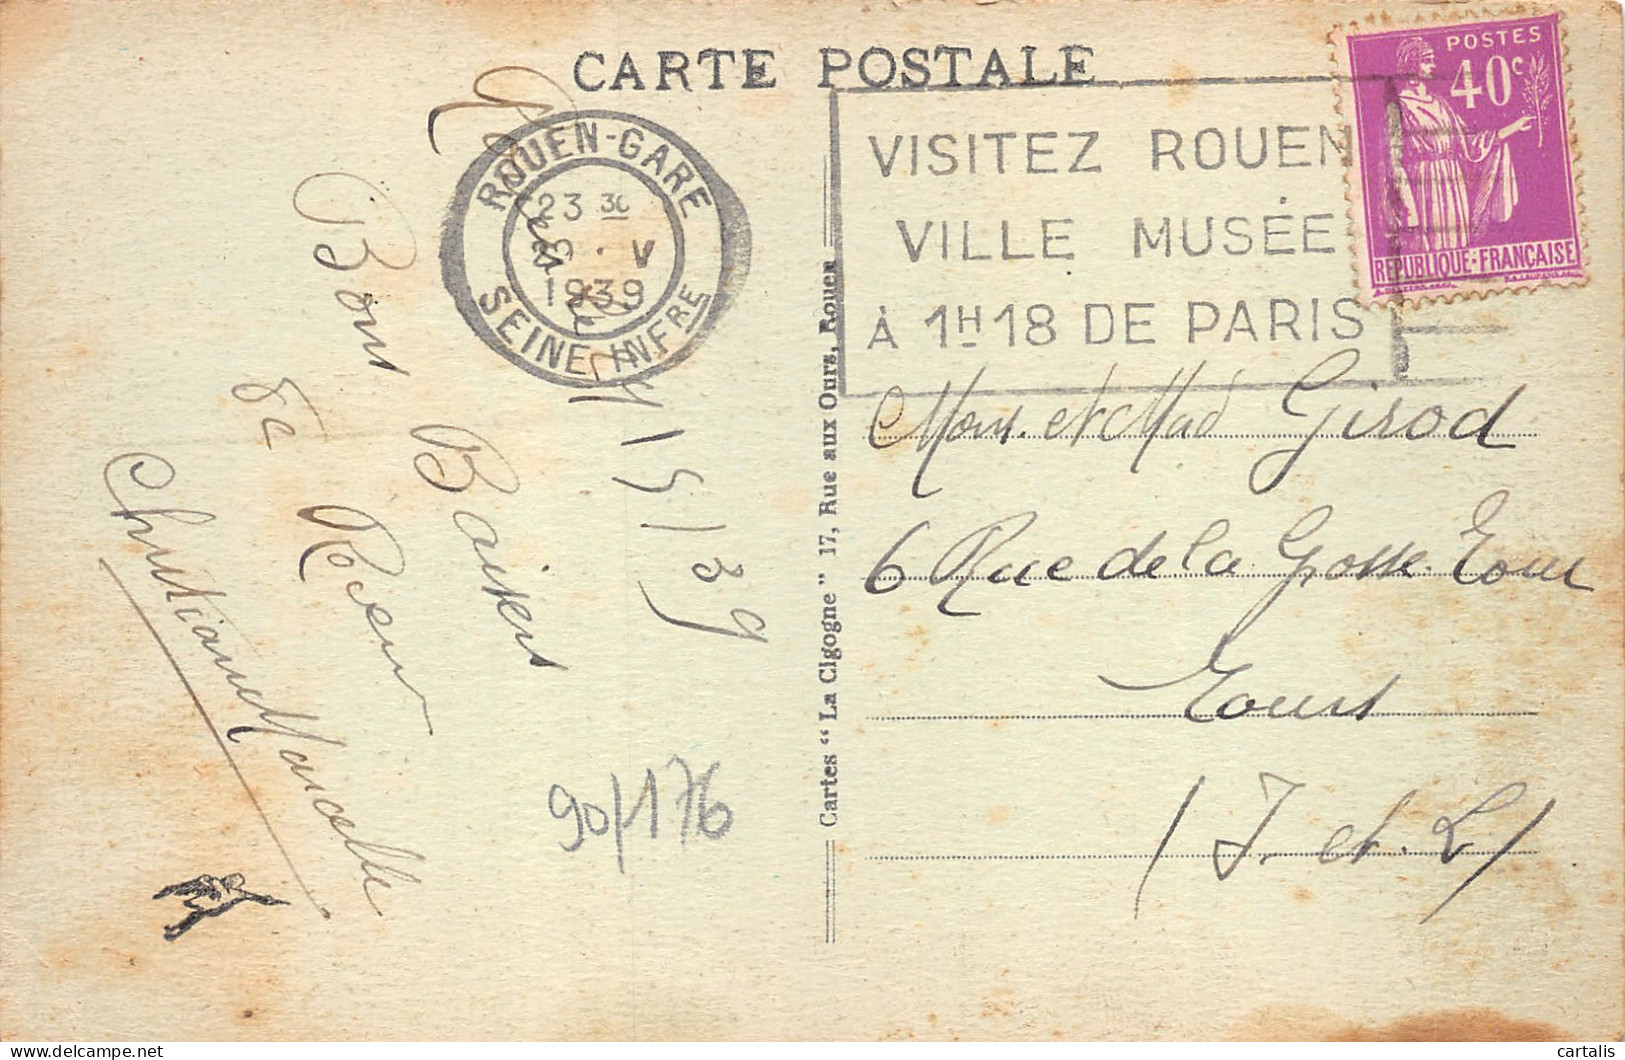 CARTE POSTALE
ROUEN-GARE
23 30
V
1939
SEINE INFRE
VISITEZ ROUEN
VILLE MUSÉE
À 1H18 DE PARIS
POSTES
40c
REPUBLIQUE·FRANÇAISE
Bons Baisers
de Rouen
Christiane Marcelle
5/39
90/176
Cartes “La Cigogne” 17, Rue aux Ours, Rouen
Mons. et Mad Girod
6 Rue de la Grosse Tour
Tours
(I. et. L)
cartalis